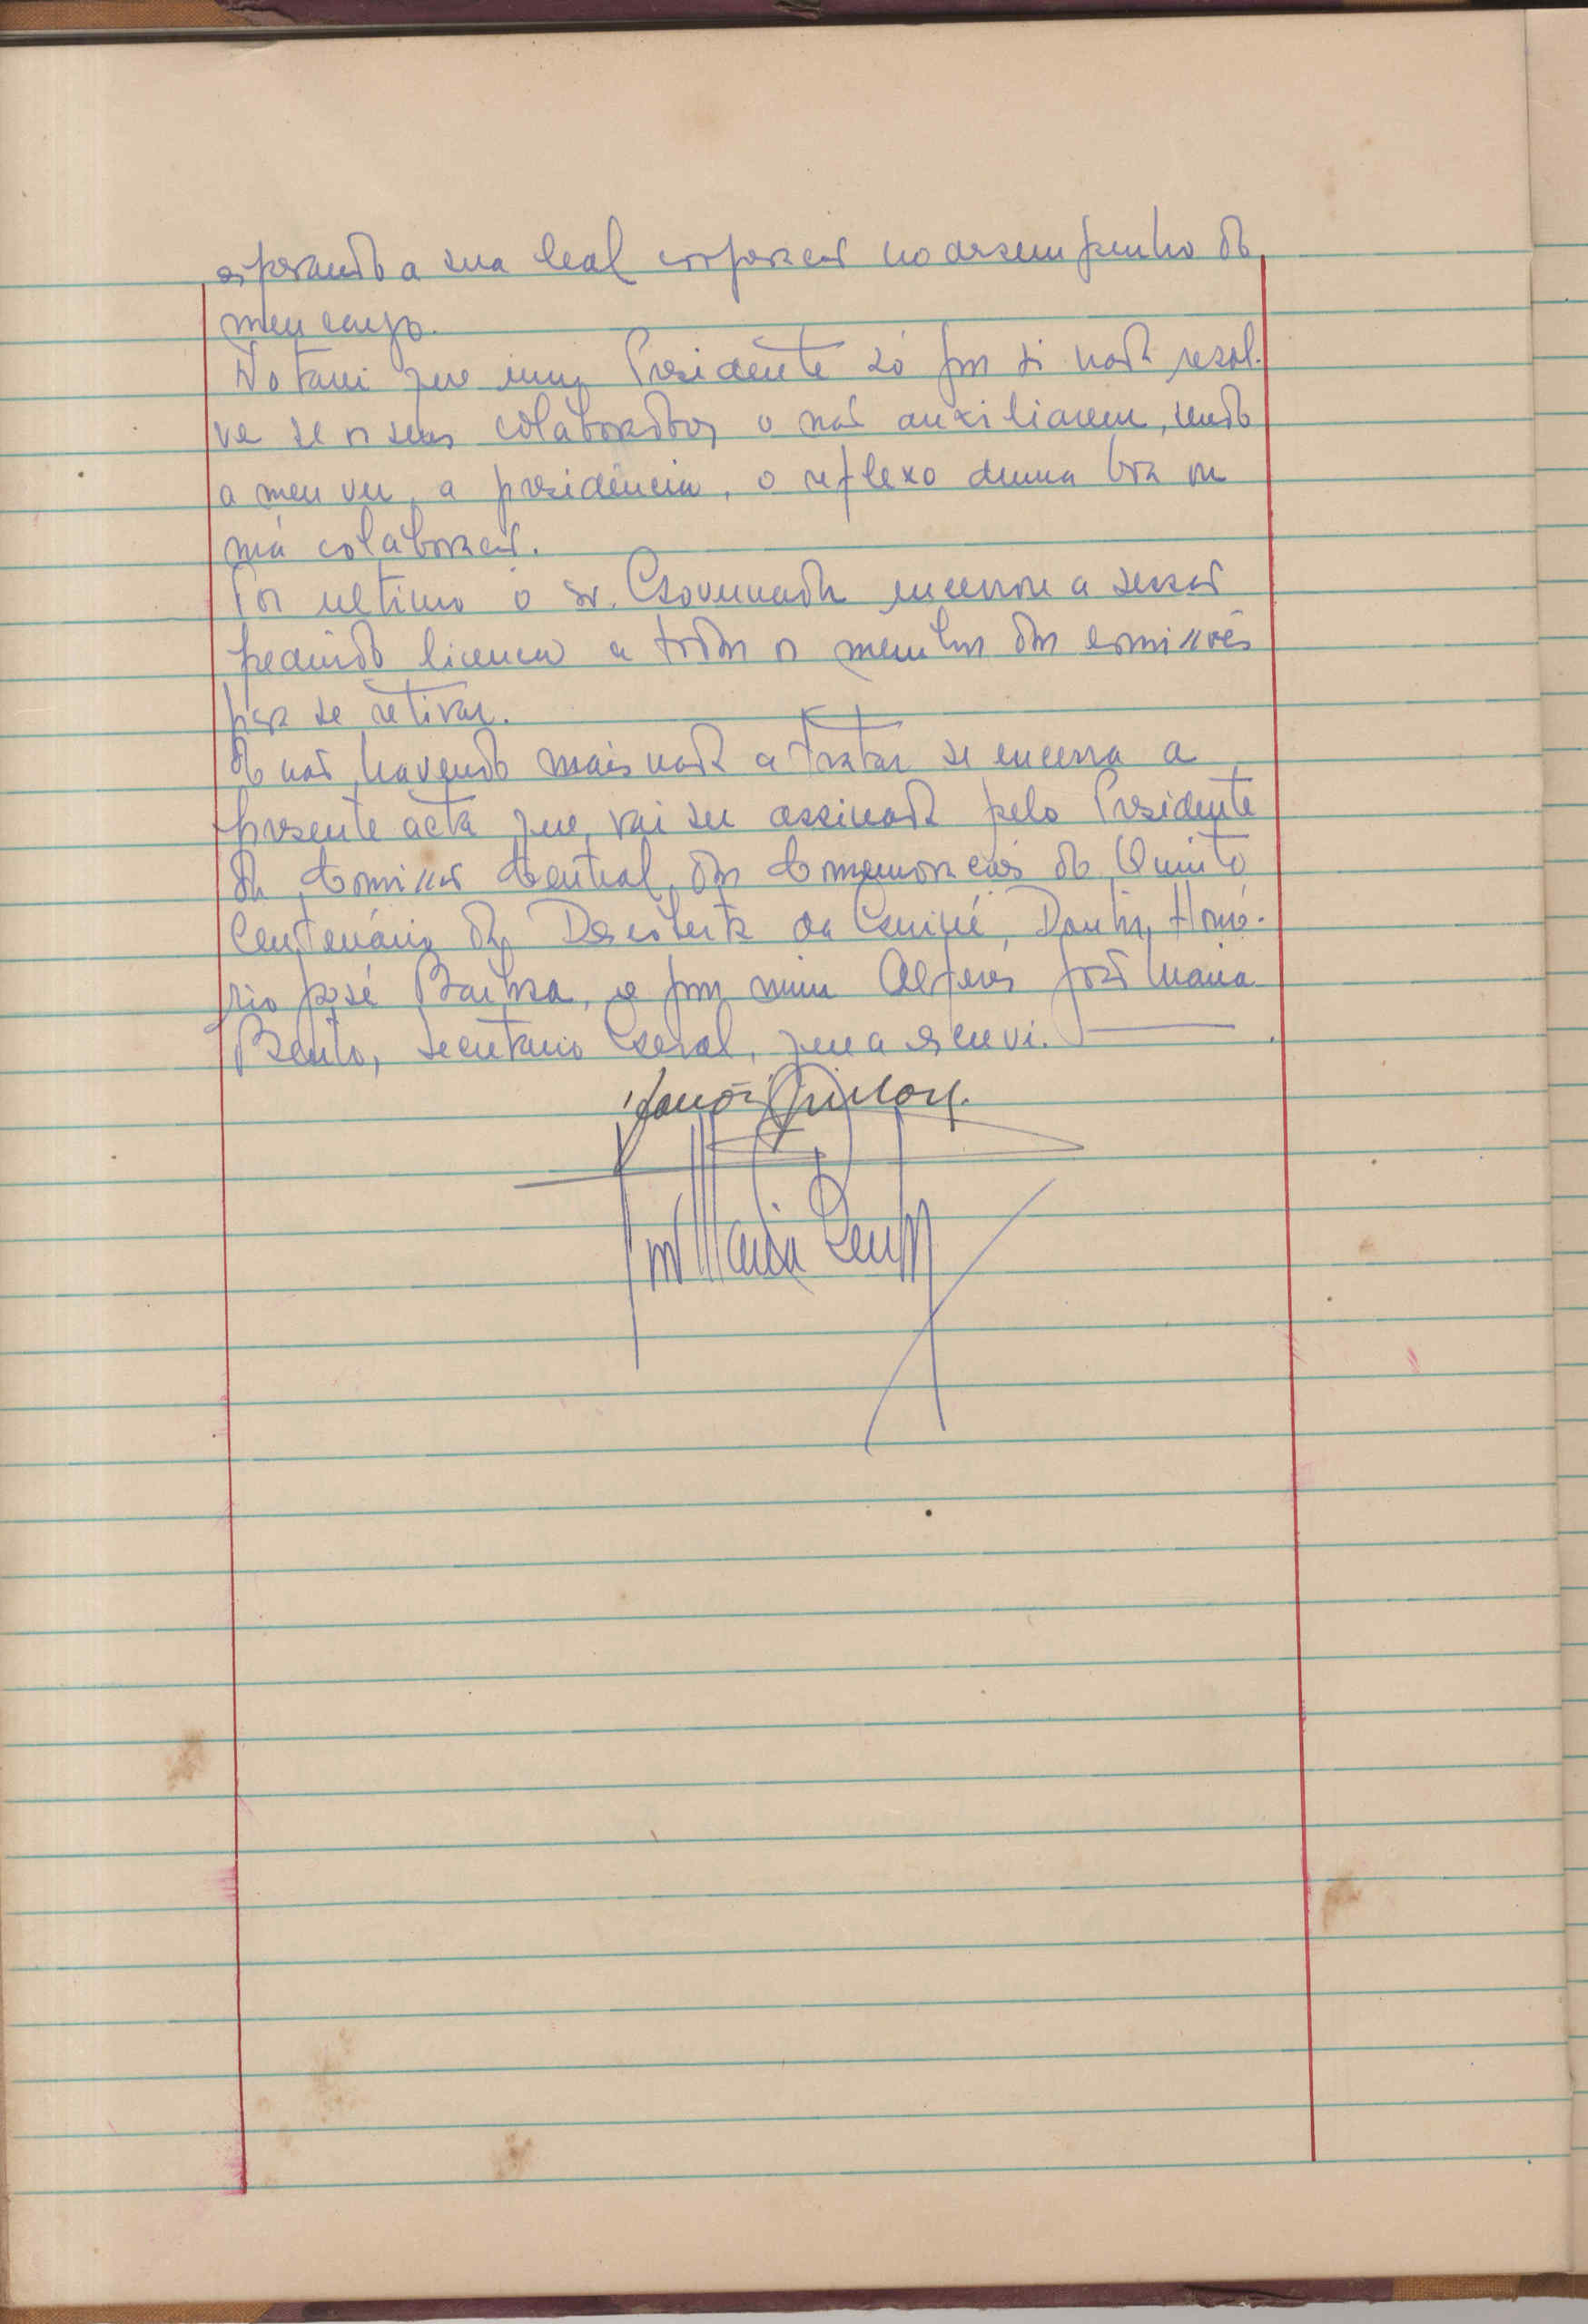 esperando a sua leal cooperação no desempenho do
meu cargo.
Notarei que um Presidente só por si nada resol-
ve se os seus colaboradores o não auxiliarem, sendo
a meu ver, a presidência, o reflexo duma boa ou
má colaboração.
Por ultimo o sr. Governador encerrou a sessão
pedindo licença a todos os membros das comissões
para se retirar.
E não havendo mais nada a tratar se encerra a
presente acta que vai ser assinada pelo Presidente
da Comissão Central das Comemorações do Quinto
Centenário da Descoberta da Guiné, Doutor Honó-
rio José Barbosa, e por mim Alferes José Maria
Bento, Secretario Geral, que a escrevi.
José Maria Bento